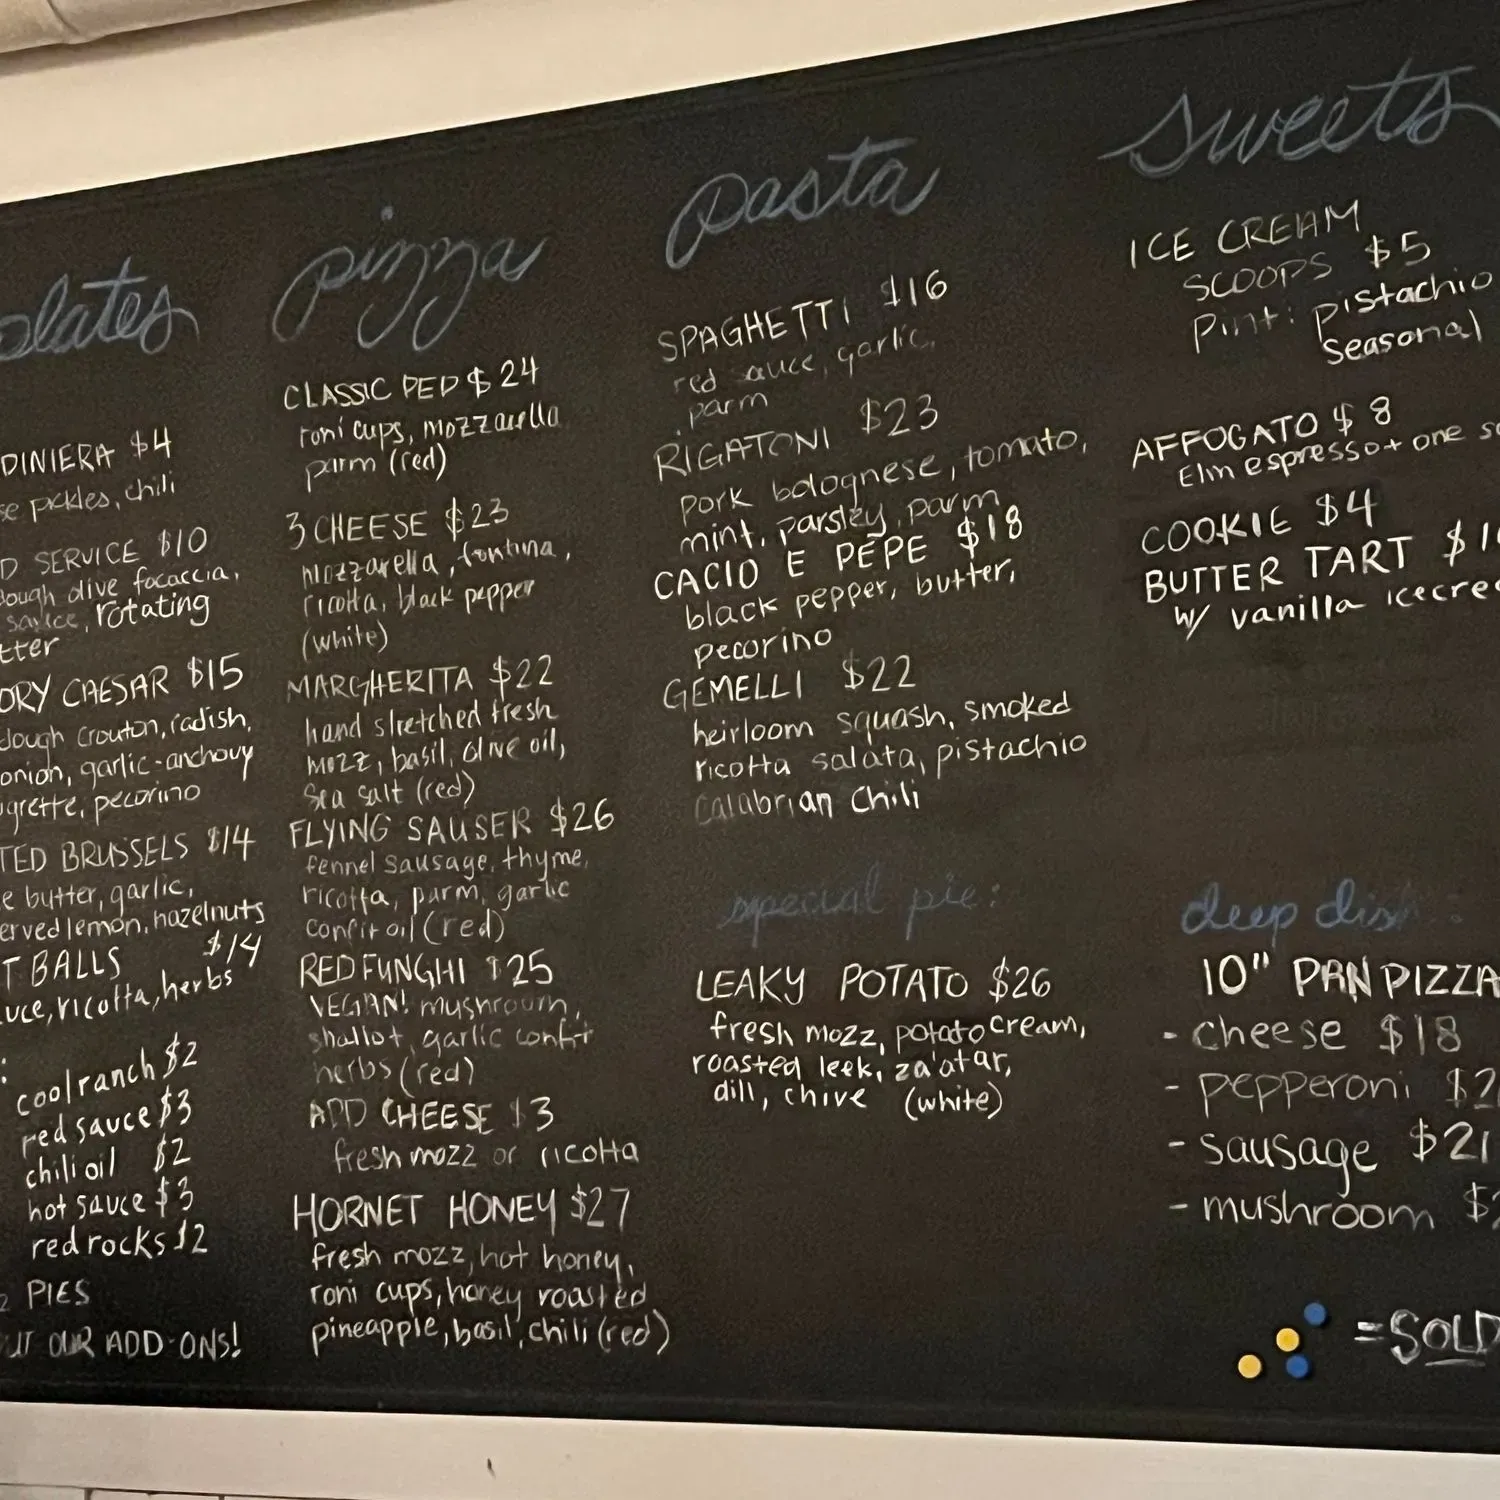 plates
DINIERA $4
se pickles, chili
D SERVICE $10
dough olive focaccia,
rotating
tter
ORY CAESAR $15
dough crouton, radish,
onion, garlic-anchovy
grette, pecorino
TED BRUSSELS $14
e butter, garlic,
erved lemon, hazelnuts
T BALLS $14
uce, ricotta, herbs
:
cool ranch $2
red sauce $3
chili oil $2
hot sauce $3
red rocks $2
2 PIES
UT OUR ADD-ONS!
pizza
CLASSIC PEP $24
roni cups, mozzarella
parm (red)
3 CHEESE $23
mozzarella, fontina,
ricotta, black pepper
(white)
MARGHERITA $22
hand stretched fresh
mozz, basil, olive oil,
sea salt (red)
FLYING SAUSER $26
fennel sausage, thyme,
ricotta, parm, garlic
confit oil (red)
RED FUNGHI $25
VEGAN! mushroom,
shallot, garlic confit
herbs (red)
ADD CHEESE $3
fresh mozz or ricotta
HORNET HONEY $27
fresh mozz, hot honey,
roni cups, honey roasted
pineapple, basil, chili (red)
pasta
SPAGHETTI $16
red sauce, garlic,
parm
RIGATONI $23
pork bolognese, tomato,
mint, parsley, parm
CACIO E PEPE $18
black pepper, butter,
pecorino
GEMELLI $22
heirloom squash, smoked
ricotta salata, pistachio
calabrian chili
special pie:
LEAKY POTATO $26
fresh mozz, potato cream,
roasted leek, za'atar,
dill, chive (white)
sweets
ICE CREAM
SCOOPS $5
pint: pistachio
seasonal
AFFOGATO $8
Elm espresso + one s
COOKIE $4
BUTTER TART $1
w/ vanilla icecre
deep dish:
10" PAN PIZZA
- cheese $18
- pepperoni $2
- sausage $21
- mushroom $
= SOLD